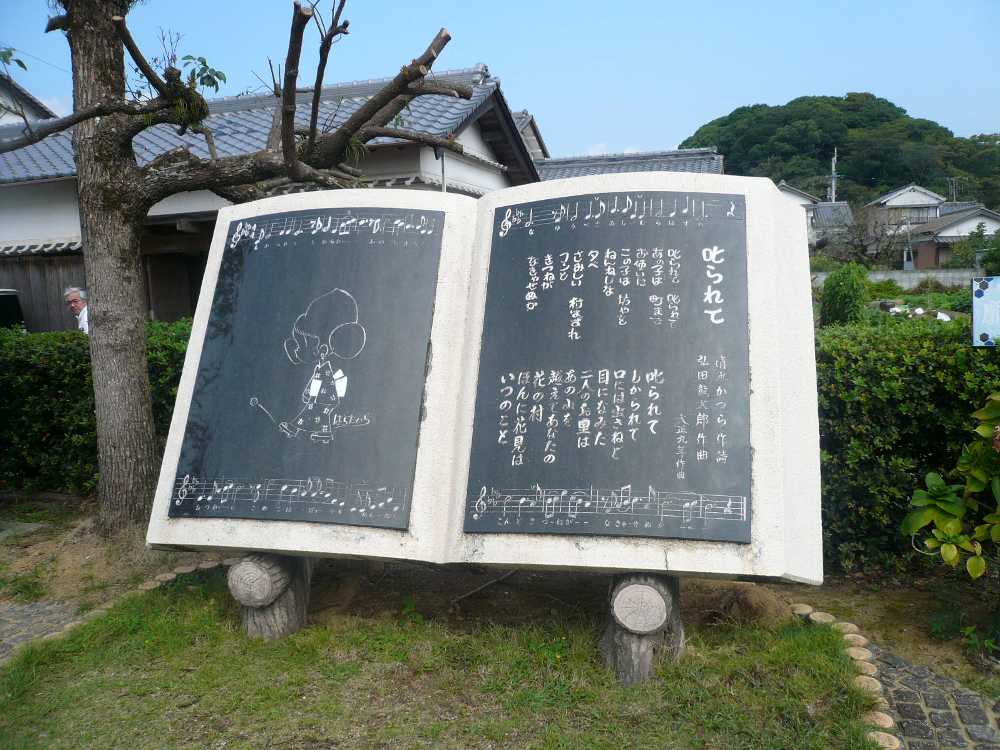 叱られて
清水かつら 作詩
弘田龍太郎 作曲
大正九年作曲
叱られて 叱られて
あの子は 町まで
お使いに
この子は 坊やを
ねんねしな
夕べ
さみしい 村はずれ
コンと
きつねが
なきゃせぬか
叱られて
しかられて
口には出さねど
目になみだ
二人のお里は
あの山を
越えてあなたの
花の村
ほんに花見は
いつのこと
こんと きつーねがーー なきゃーせぬか